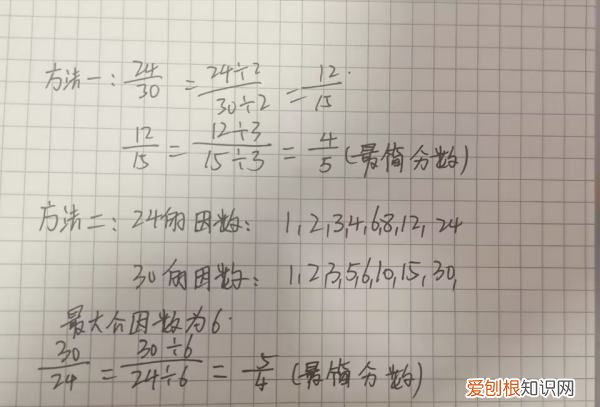 方法一：24/30 = 24÷2/30÷2 = 12/15.
12/15 = 12÷3/15÷3 = 4/5 (最简分数)
方法二：24的因数：1,2,3,4,6,8,12, 24
30的因数：1,2,3,5,6,10,15,30,
最大公因数为6.
30/24 = 30÷6/24÷6 = 5/4 (最简分数)
爱刨根知识网